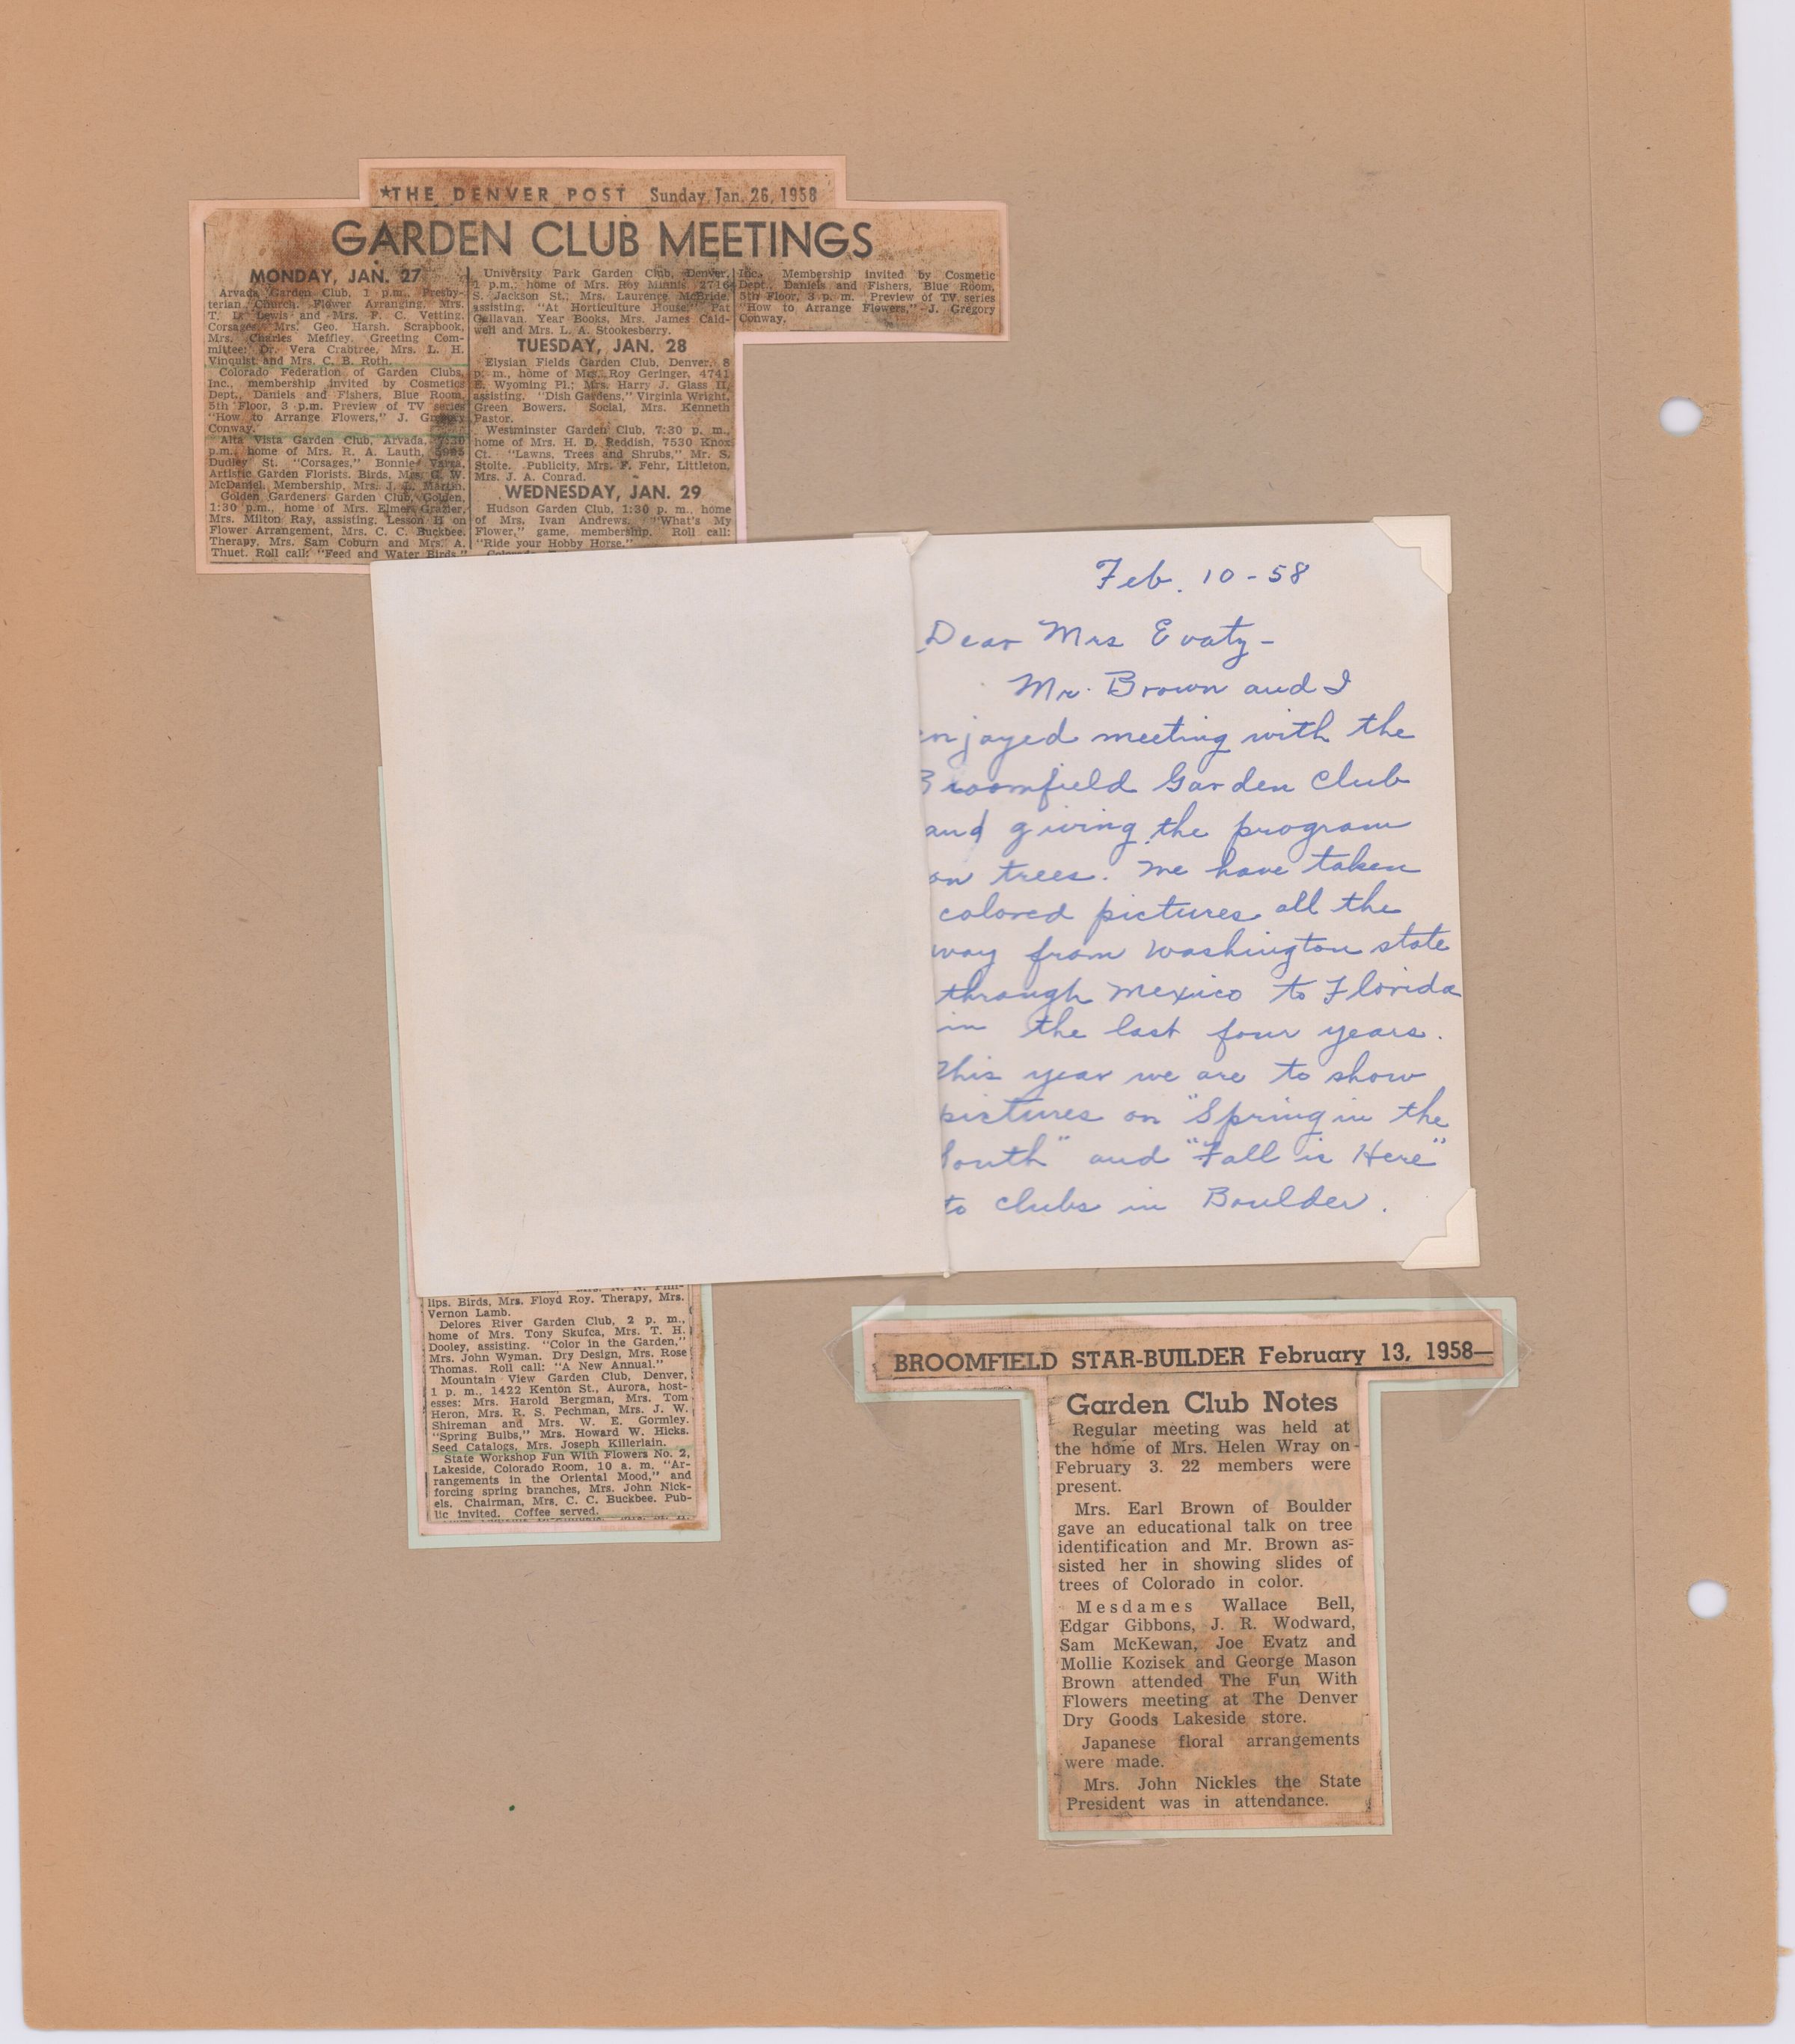 ★THE DENVER POST Sunday, Jan. 26, 1958
GARDEN CLUB MEETINGS
MONDAY, JAN. 27
Arvada Garden Club, 1 p.m., Presby-
terian Church. Flower Arranging, Mrs.
T. D. Lewis and Mrs. F. C. Vetting.
Corsages, Mrs. Geo. Harsh. Scrapbook,
Mrs. Charles Meffley. Greeting Com-
mittee: Dr. Vera Crabtree, Mrs. L. H.
Vinquist and Mrs. C. B. Roth.
Colorado Federation of Garden Clubs,
Inc., membership invited by Cosmetics
Dept., Daniels and Fishers, Blue Room,
5th Floor, 3 p.m. Preview of TV series
"How to Arrange Flowers," J. Gregory
Conway.
Alta Vista Garden Club, Arvada, 7:30
p.m., home of Mrs. R. A. Lauth,
Dudley St. "Corsages," Bonnie Varra,
Artistic Garden Florists. Birds, Mrs. G. W.
McDaniel, Membership, Mrs. J. L. Martin.
Golden Gardeners Garden Club, Golden,
1:30 p.m., home of Mrs. Elmer Grazier,
Mrs. Milton Ray, assisting. Lesson II on
Flower Arrangement, Mrs. C. C. Buckbee.
Therapy, Mrs. Sam Coburn and Mrs. A.
Thuet. Roll call: "Feed and Water Birds."
University Park Garden Club, Denver,
1 p.m., home of Mrs. Roy Minnis, 2716
S. Jackson St.; Mrs. Laurence McBride,
assisting. "At Horticulture House," Pat
Gallavan. Year Books, Mrs. James Cald-
well and Mrs. L. A. Stookesberry.
TUESDAY, JAN. 28
Elysian Fields Garden Club, Denver, 8
p. m., home of Mrs. Roy Geringer, 4741
E. Wyoming Pl.; Mrs. Harry J. Glass II,
assisting. "Dish Gardens," Virginia Wright,
Green Bowers. Social, Mrs. Kenneth
Pastor.
Westminster Garden Club, 7:30 p. m.,
home of Mrs. H. D. Reddish, 7530 Knox
Ct. "Lawns, Trees and Shrubs," Mr. S.
Stolte. Publicity, Mrs. F. Fehr, Littleton,
Mrs. J. A. Conrad.
WEDNESDAY, JAN. 29
Hudson Garden Club, 1:30 p. m., home
of Mrs. Ivan Andrews. "What's My
Flower," game, membership. Roll call:
"Ride your Hobby Horse."
Inc., Membership invited by Cosmetic
Dept., Daniels and Fishers, Blue Room,
5th Floor, 3 p. m. Preview of TV series
"How to Arrange Flowers," J. Gregory
Conway.
Feb. 10 - 58
Dear Mrs Evatz -
Mr. Brown and I
enjoyed meeting with the
Broomfield Garden Club
and giving the program
on trees. We have taken
colored pictures all the
way from Washington state
through Mexico to Florida
in the last four years.
This year we are to show
pictures on "Spring in the
South" and "Fall is Here"
to clubs in Boulder.
lips. Birds, Mrs. Floyd Roy. Therapy, Mrs.
Vernon Lamb.
Delores River Garden Club, 2 p. m.,
home of Mrs. Tony Skufca, Mrs. T. H.
Dooley, assisting. "Color in the Garden,"
Mrs. John Wyman. Dry Design, Mrs. Rose
Thomas. Roll call: "A New Annual."
Mountain View Garden Club, Denver,
1 p. m., 1422 Kenton St., Aurora, host-
esses: Mrs. Harold Bergman, Mrs. Tom
Heron, Mrs. R. S. Pechman, Mrs. J. W.
Shireman and Mrs. W. E. Gormley.
"Spring Bulbs," Mrs. Howard W. Hicks.
Seed Catalogs, Mrs. Joseph Killerlain.
State Workshop Fun With Flowers No. 2,
Lakeside, Colorado Room, 10 a. m. "Ar-
rangements in the Oriental Mood," and
forcing spring branches, Mrs. John Nick-
els. Chairman, Mrs. C. C. Buckbee. Pub-
lic invited. Coffee served.
BROOMFIELD STAR-BUILDER February 13, 1958—
Garden Club Notes
Regular meeting was held at
the home of Mrs. Helen Wray on
February 3. 22 members were
present.
Mrs. Earl Brown of Boulder
gave an educational talk on tree
identification and Mr. Brown as-
sisted her in showing slides of
trees of Colorado in color.
Mesdames Wallace Bell,
Edgar Gibbons, J. R. Wodward,
Sam McKewan, Joe Evatz and
Mollie Kozisek and George Mason
Brown attended The Fun With
Flowers meeting at The Denver
Dry Goods Lakeside store.
Japanese floral arrangements
were made.
Mrs. John Nickles the State
President was in attendance.